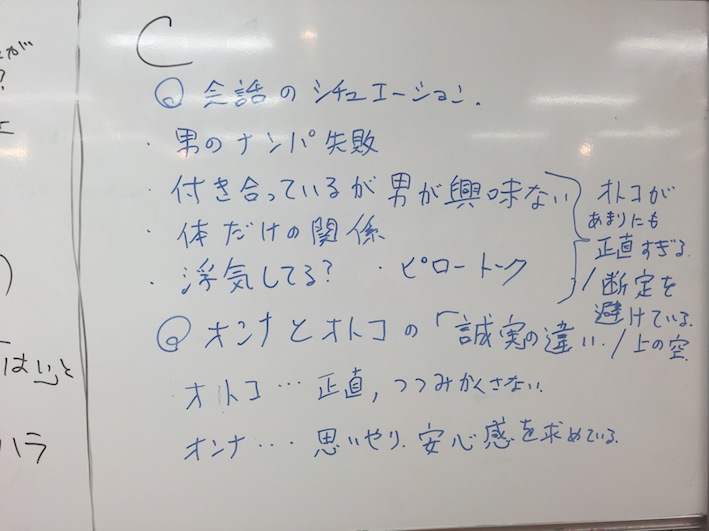 C
Q 会話のシチュエーション.
・男のナンパ失敗
・付き合っているが男が興味ない
・体だけの関係
・浮気してる? ・ピロートーク
オトコが
あまりにも
正直すぎる.
/断定を
避けている.
/上の空
Q オンナとオトコの「誠実の違い.
オトコ…正直,つつみかくさない.
オンナ…思いやり.安心感を求めている.
が
?
「はい」と
ハラ